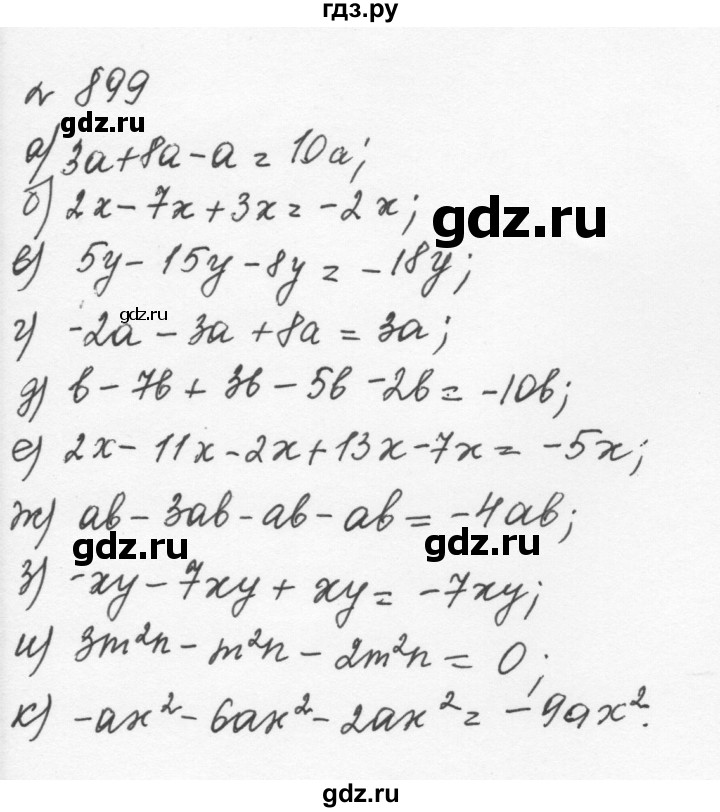 гдз.ру
№ 899
gdz.ru
а) 3a+8a-a=10a;
б) 2x-7x+3x=-2x;
gdz.ru
в) 5y-15y-8y=-18y;
gdz.ru
г) -2a-3a+8a=3a;
д) b-7b+3b-5b-2b=-10b;
е) 2x-11x-2x+13x-7x=-5x;
ж) ab-3ab-ab-ab=-4ab;
gdz.ru gdz.ru
з) -xy-7xy+xy=-7xy;
и) 3m²n-m²n-2m²n=0;
к) -ax²-6ax²-2ax²=-9ax².
gdz.ru gdz.ru